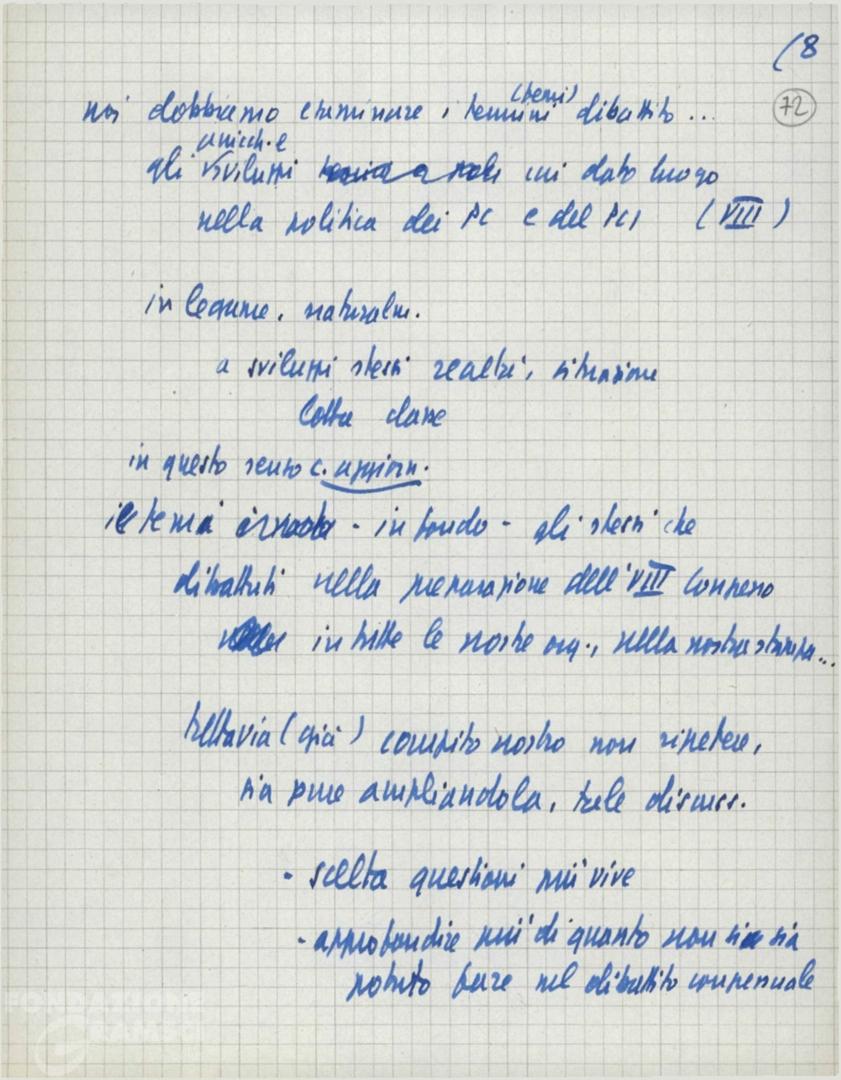 (8
72
noi dobbiamo esaminare i termini (temi) dibattito ...
gli sviluppi cui dato luogo
nella politica dei PC e del PCI (VIII)
in legame, naturalm.
a sviluppi stessi realtà, situazione
lotta classe
in questo senso c. aggiorn.
i temi - in fondo - gli stessi che
dibattuti nella preparazione dell'VIII Congresso
in tutte le nostre org., nella nostra stampa...
tuttavia (già) compito nostro non ripetere,
sia pure ampliandola, tale discuss.
- scelta questioni più vive
- approfondire più di quanto non si sia
potuto fare nel dibattito congressuale
FONDAZIONE
GRAMSCI